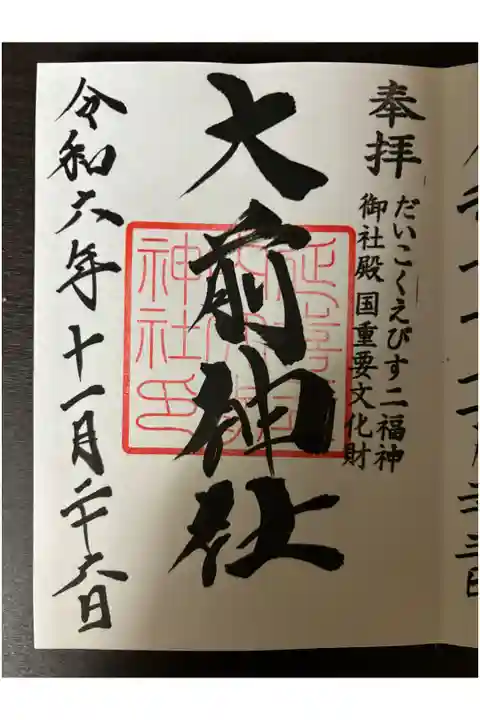 奉拝
だいこくえびす二福神
御社殿国重要文化財
大前神社
延喜式内
神社印
令和六年十一月二十六日